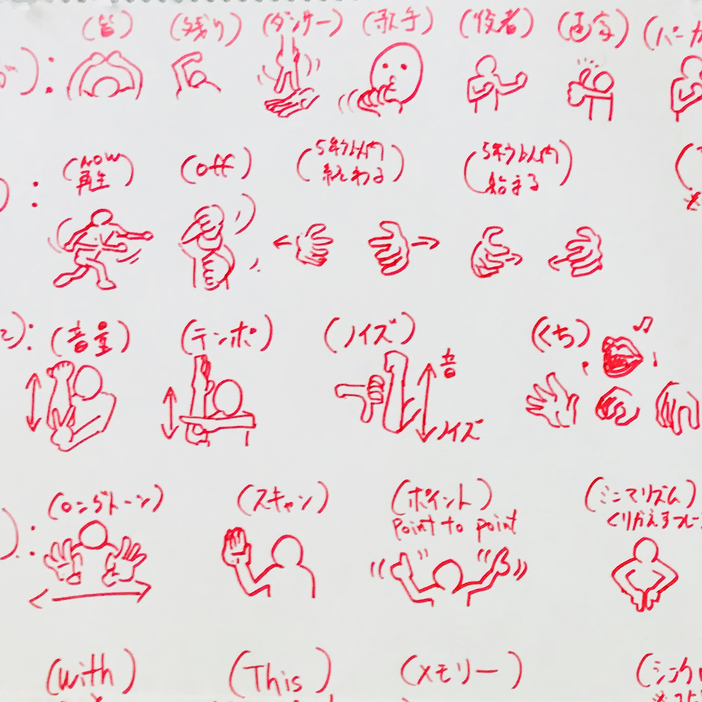 (皆) (残り) (ダンサー) (歌手) (役者) (画家) (パーカ
(now (off) (5秒以内 (5秒以内
再生) 終わる) 始まる)
(音量) (テンポ) (ノイズ) (くち)
音
ノイズ
(ロングトーン) (スキャン) (ポイント) (ミニマリズム)
point to point くりかえすフレー
(with) (This) (メモリー) (シンク